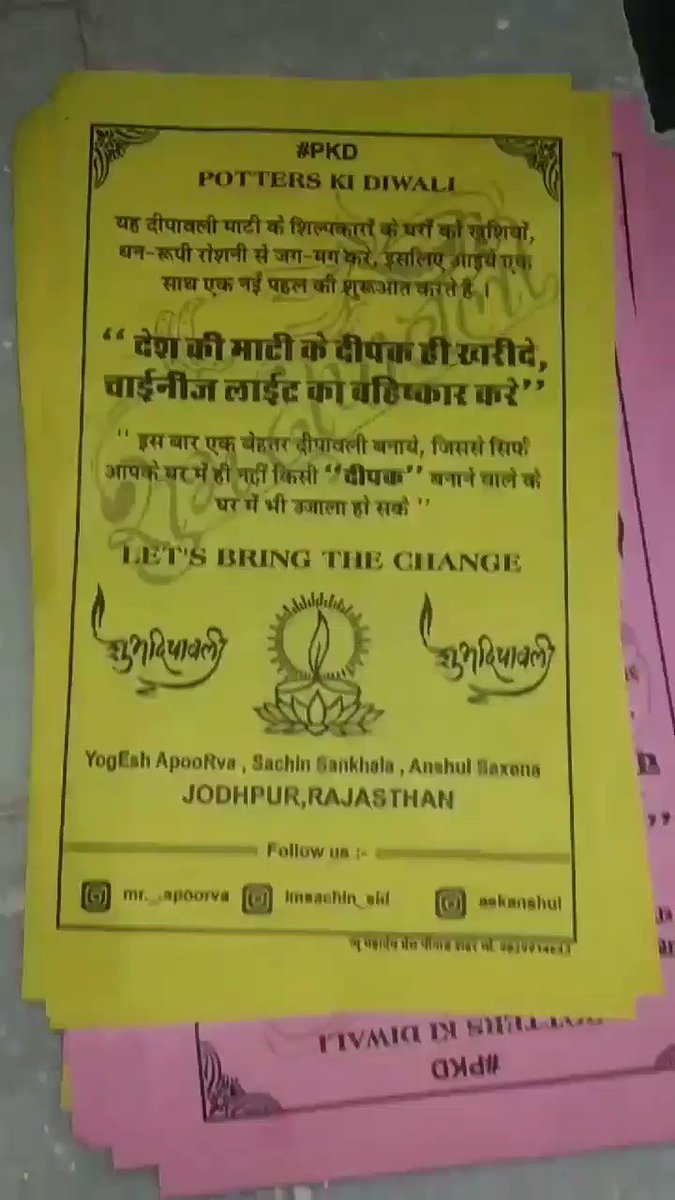 #PKD
POTTERS KI DIWALI
यह दीपावली माटी के शिल्पकारों के घरों को खुशियों,
धन-रूपी रोशनी से जग-मग करे, इसलिए आइये एक
साथ एक नई पहल की शुरूआत करते है ।
“ देश की माटी के दीपक ही खरीदे,
चाईनीज लाईट का बहिष्कार करे”
" इस बार एक बेहतर दीपावली बनाये, जिससे सिर्फ
आपके घर में ही नहीं किसी “दीपक” बनाने वाले के
घर में भी उजाला हो सके "
LET'S BRING THE CHANGE
शुभ दिपावली
शुभ दिपावली
YogEsh ApooRva , Sachin Sankhala , Anshul Saxena
JODHPUR,RAJASTHAN
Follow us :-
mr._.apoorva imsachin_skl askanshul
POTTERS KI DIWALI
#PKD